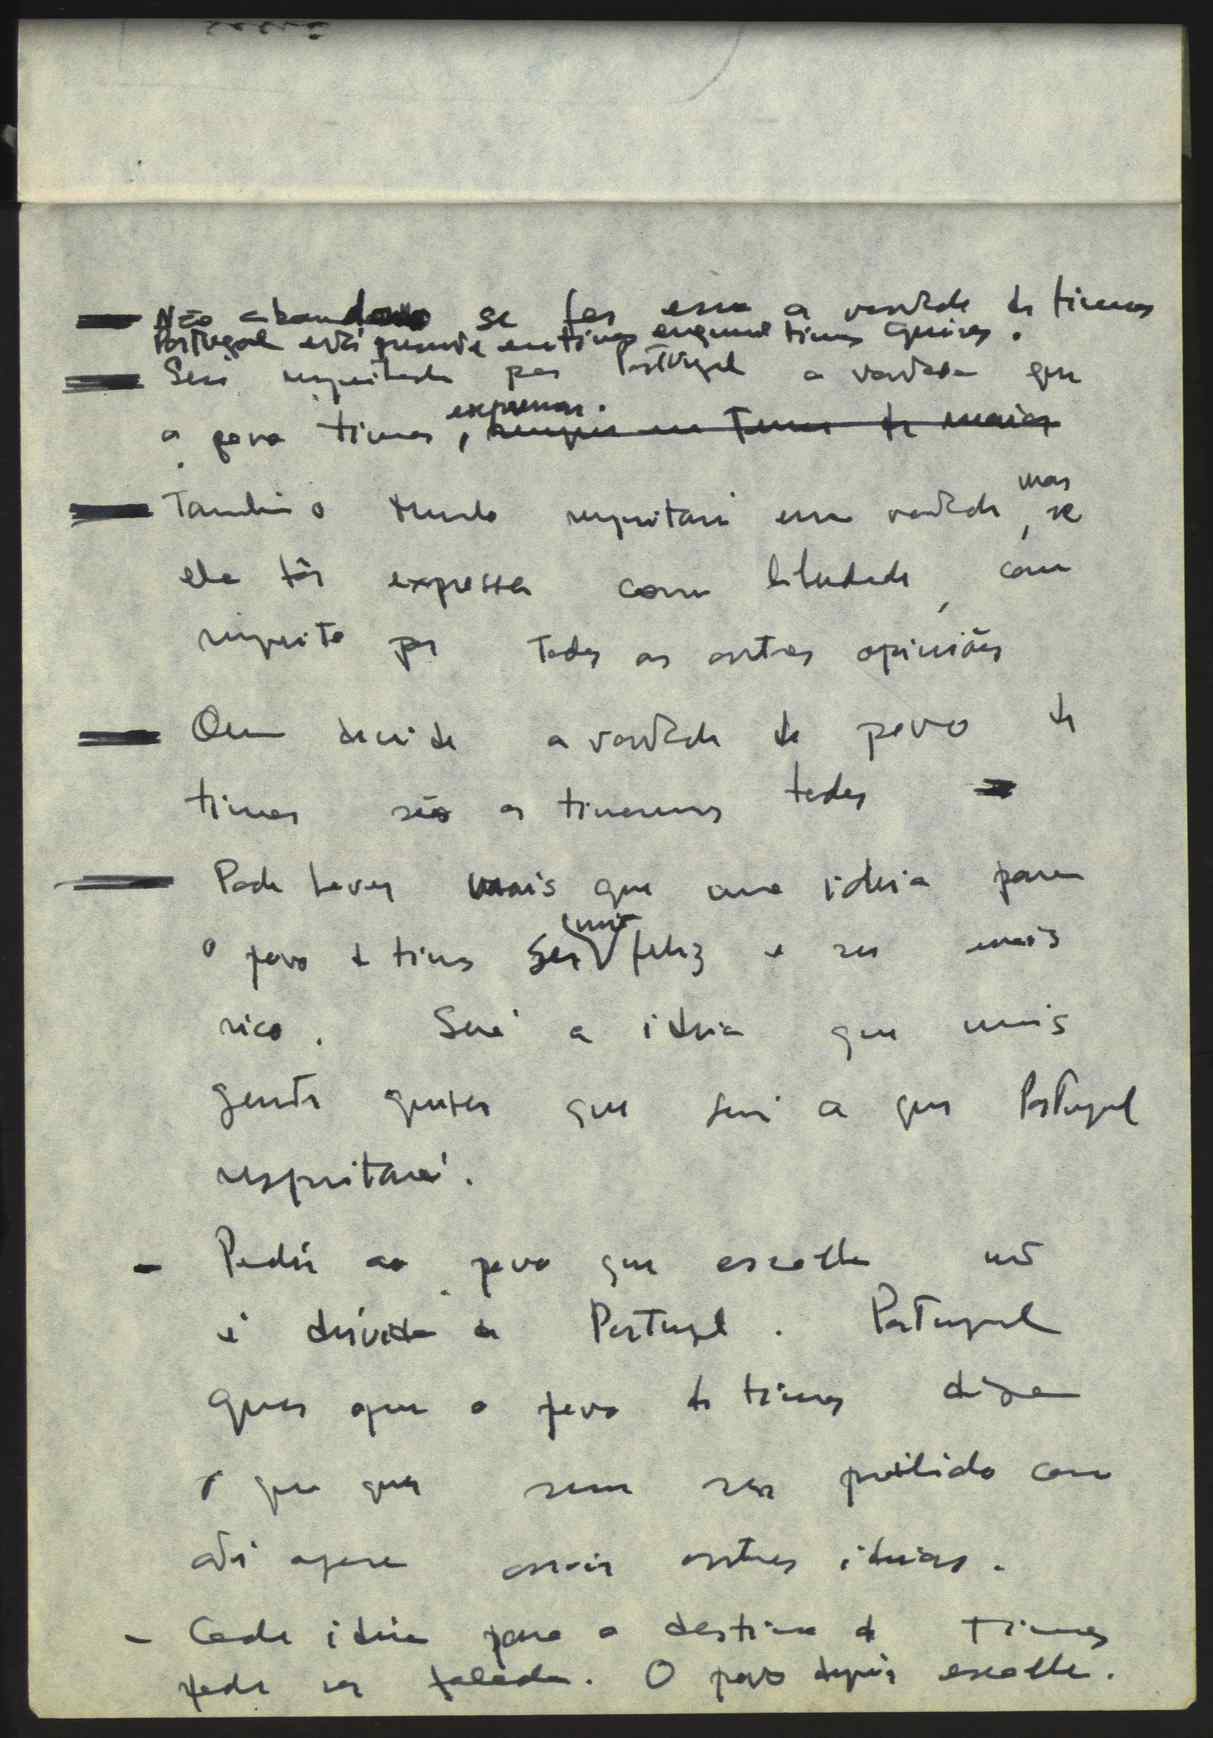 Não abandono se for essa a vontade de timor
Portugal está presente em timor enquanto timor quiser.
Será respeitada por Portugal a vontade que
o povo timor, expressar.
Também o mundo respeitará essa vontade, mas se
ela fôr expressa com liberdade, com
respeito por todas as outras opiniões
Quem decide a vontade do povo de
timor são os timorenses todos
Pode haver mais que uma ideia para
o povo de timor ser mais feliz e ser mais
rico. Será a ideia que mais
gente quiser que será a que Portugal
respeitará.
- Pedir ao povo que escolha não
é dúvida de Portugal. Portugal
quer que o povo de timor diga
o que quer sem ser proibido como
até agora ouvir outras ideias.
- Cada ideia para o destino de Timor
pode ser falada. O povo depois escolhe.